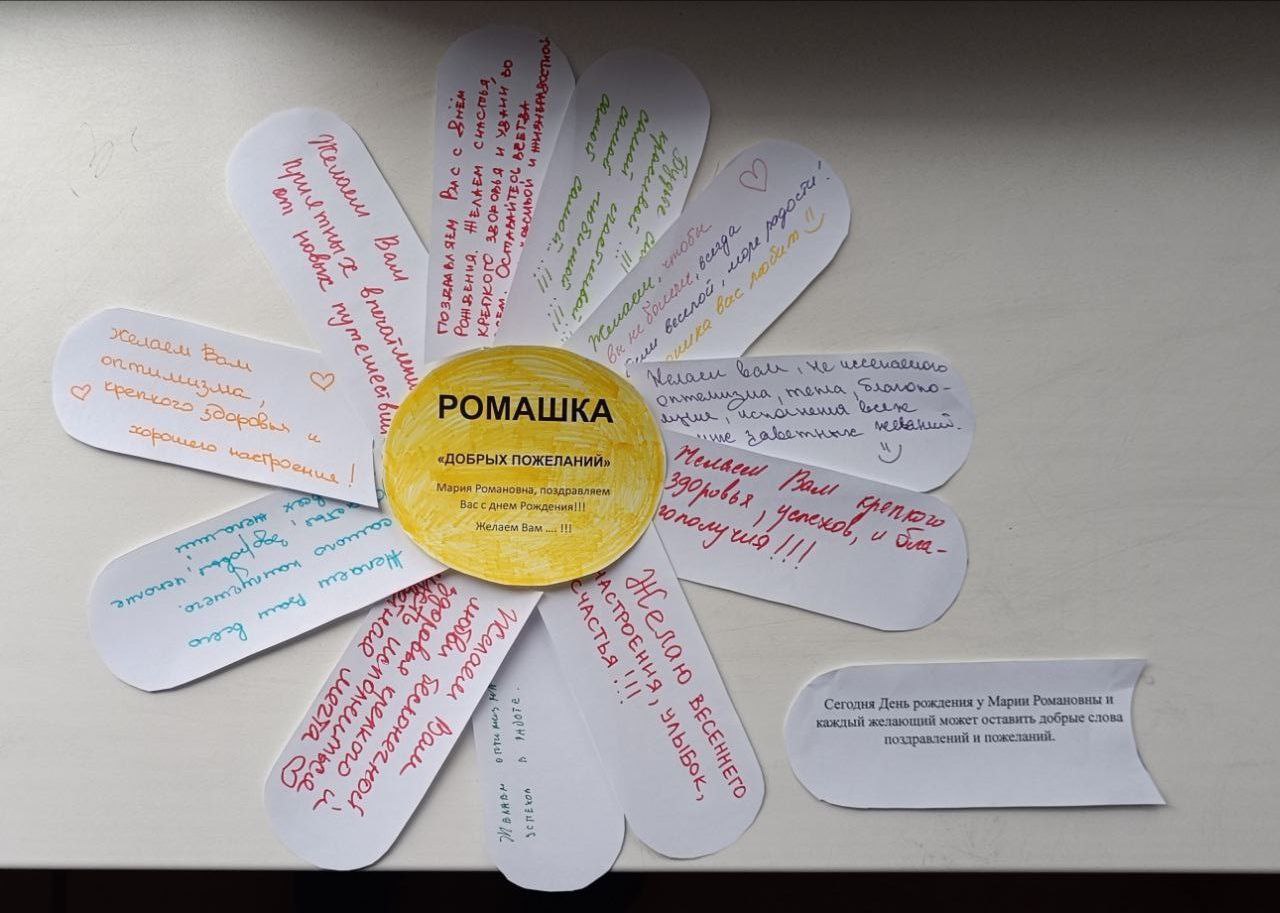 РОМАШКА
«ДОБРЫХ ПОЖЕЛАНИЙ»
Мария Романовна, поздравляем
Вас с днем Рождения!!!
Желаем Вам .... !!!
Поздравляем Вас с Днём
Рождения. Желаем счастья,
крепкого здоровья и удачи во
всем. Оставайтесь всегда
красивой и жизнерадостной
Будьте
красивой !!!
самой счастливой !!!
самой любимой !!!
самой самой... !!!
Желаем, чтобы
вы не болели, всегда
были веселой, море радости!
вас любит
Желаем вам, не иссекаемого
оптемизма, тепла, благопо-
лучия, исполнения всех
заветных желаний.
Желаем Вам крепкого
здоровья, успехов, и бла-
гополучия!!!
Желаю весеннего
настроения, улыбок,
счастья!!!
Желаем оптимизма
успехов в работе.
Желаем Вам
любви бесконечной
здоровья крепкого и
исполнится
мечта
Желаем Вам всего
самого наилучшего.
здоровья,
всех желаний
Желаем Вам
оптимизма,
крепкого здоровья и
хорошего настроения!
Желаем Вам
приятных впечатлений
от новых путешествий
Сегодня День рождения у Марии Романовны и
каждый желающий может оставить добрые слова
поздравлений и пожеланий.